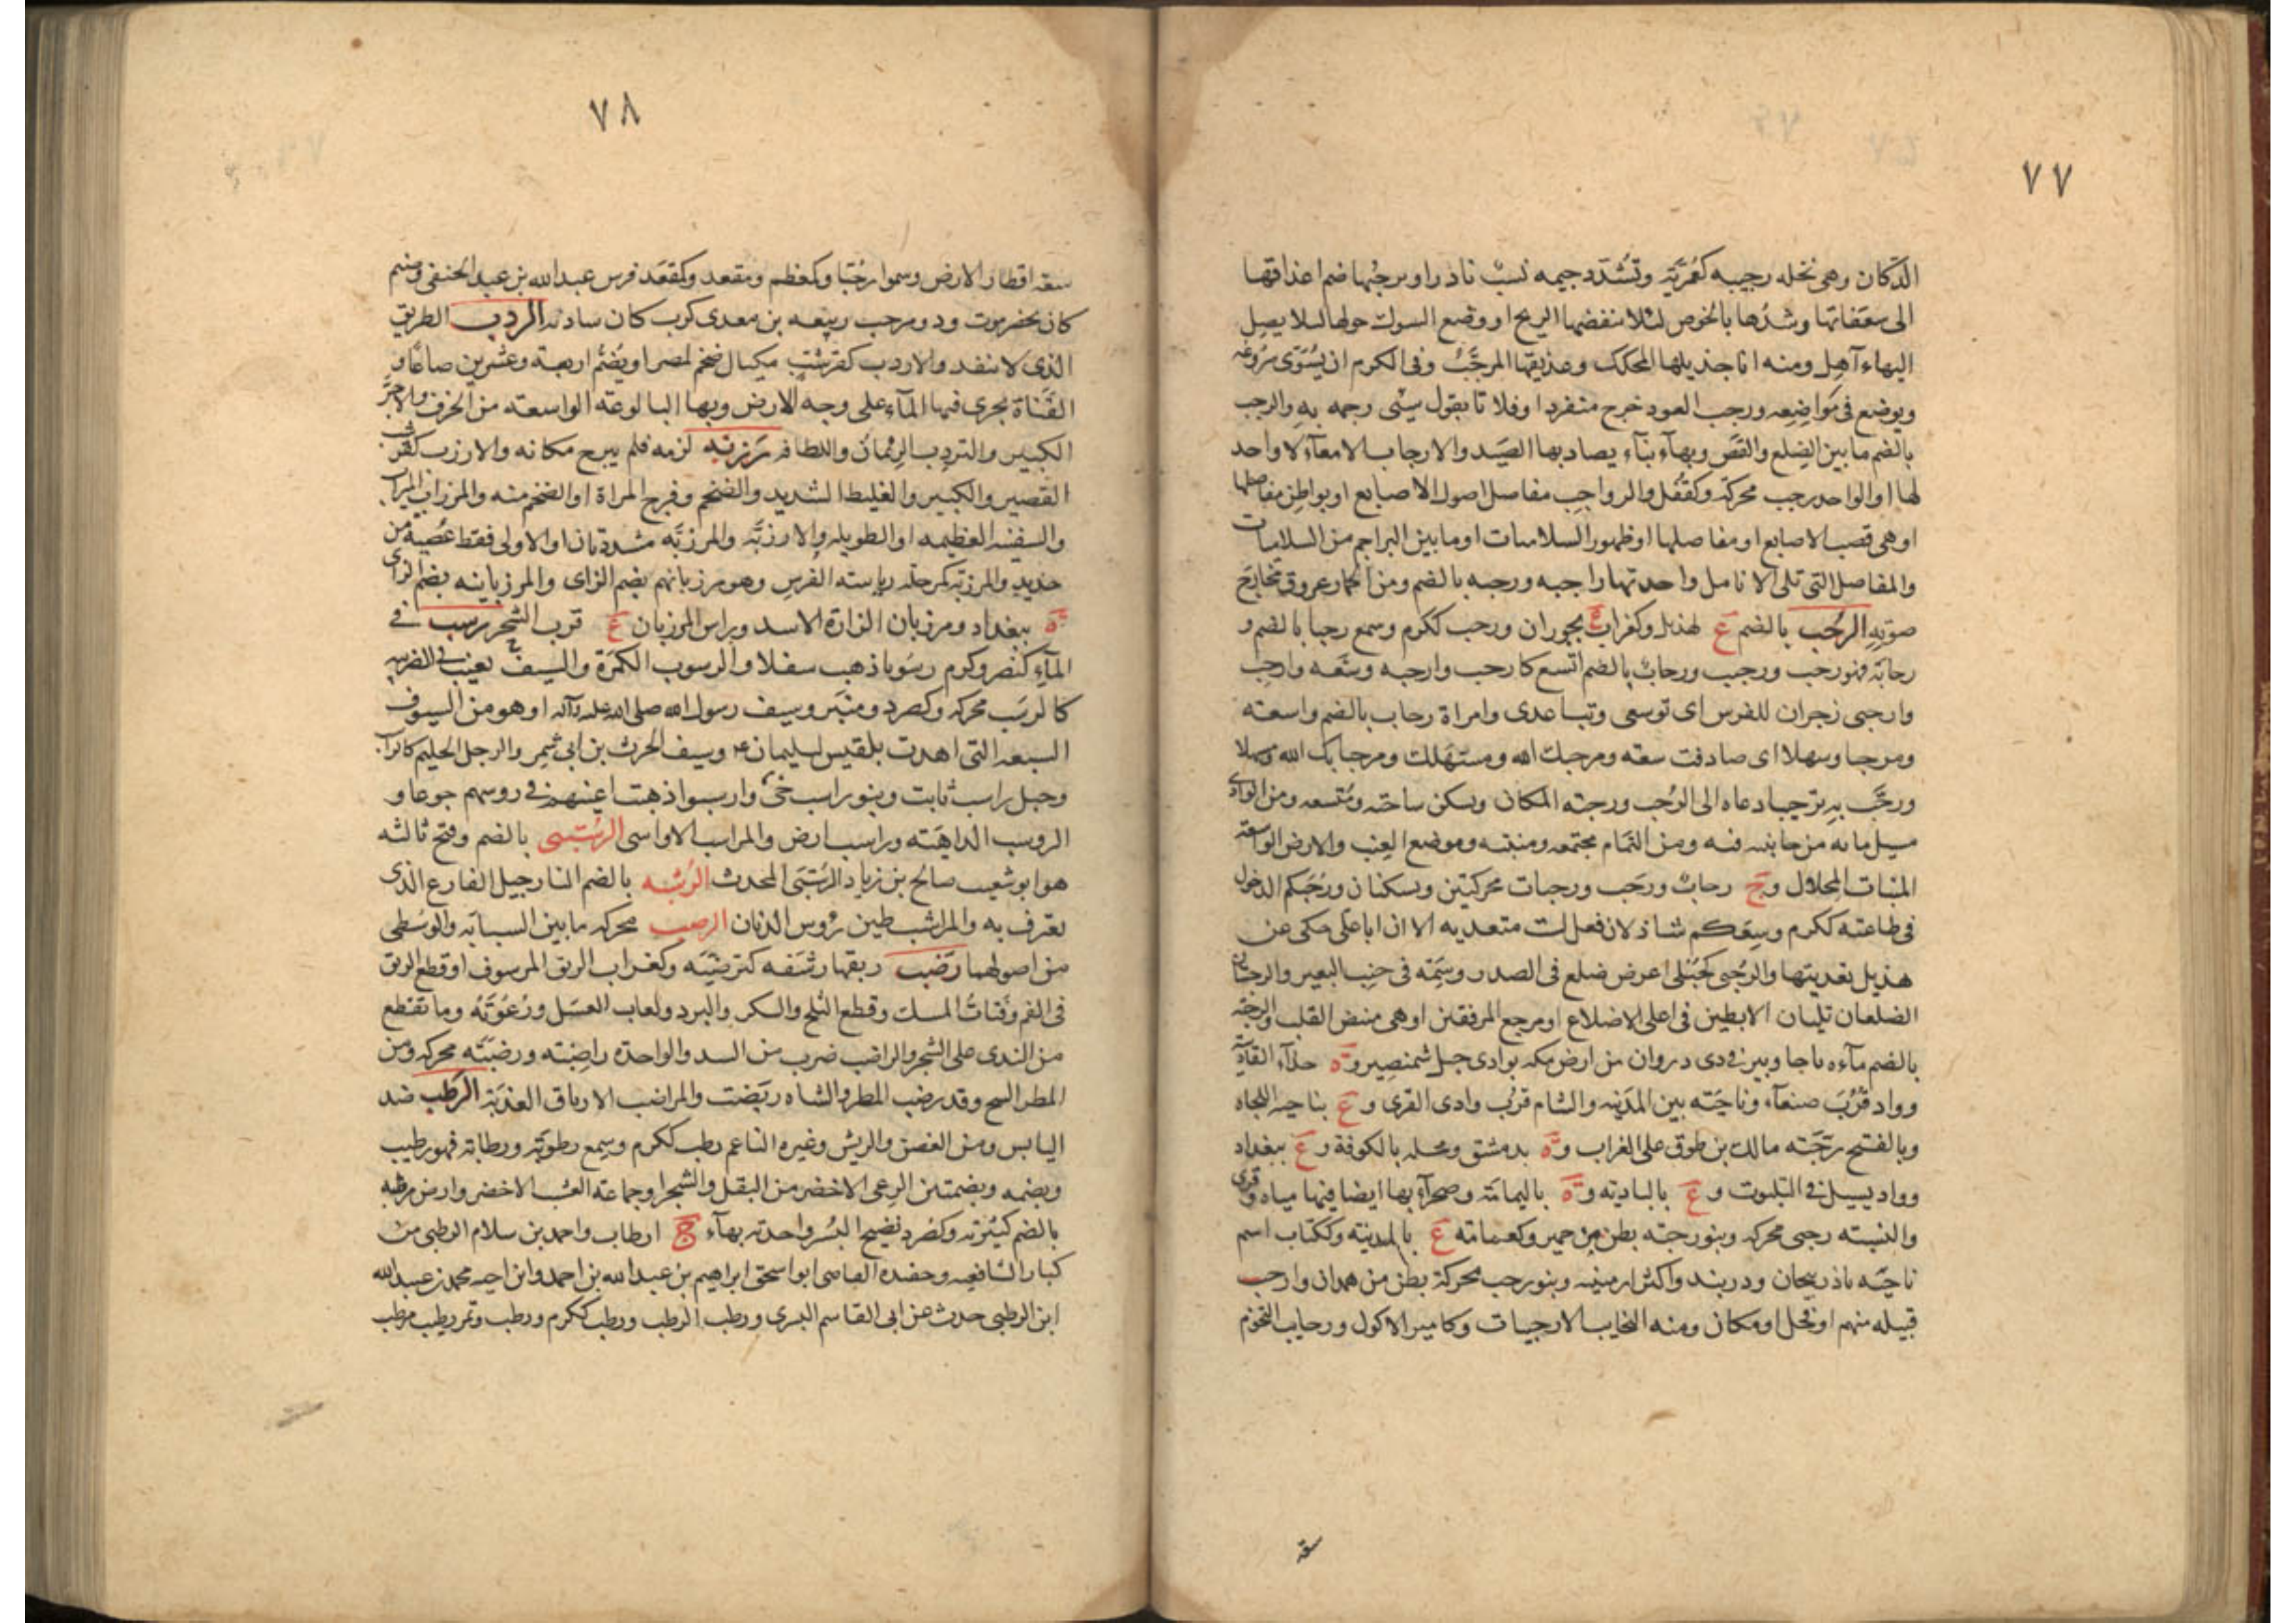 ٧٧
الدكان وهى نخلة رجبيه كعُمَريّة وتشدّد جيمه نسبٌ نادر او ترجبها ضم اعذاقها
الى سعفاتها وشدّها بالخوص لئلا ينفضها الريح او وضع الشوك حولها لئلا يصل
اليها آهل ومنه انا جذيلها المحكك وعذيقها المرجّبُ وفى الكرم ان يُسَوّى سُروعه
ويوضع فى مَواضِعه ورجب العود خرج منفردا وفلانا بقول سيئى رجمه به والرجب
بالضم ما بين الضِلع والقَصّ وبهاء بناء يصاد بها الصَيد والارجاب الامعآء لا واحد
لها او الواحد رجب محركة وكقُفل والرواجب مفاصل اصول الاصابع او بواطن مفاصلها
او هى قصب الاصابع او مفاصلها او ظهور السلاميات او ما بين البراجم من السلاميات
والمفاصل التى تلى الانامل واحدتها راجبه ورجبه بالضم ومن الحمار عروق مخارج
صوته الرُحب بالضم ع لهذيل وكغراب ة بحوران ورحب ككرم وسمع رحبا بالضم و
رحابة فهو رحب ورحيب ورحابٌ بالضم اتسع كارحب وارحبه وسّعه وارحِب
وارحبى زجران للفرس اى توسعى وتباعدى وامراة رحاب بالضم واسعته
ومرحبا وسهلا اى صادفت سعة ومرحبك الله ومسهَلك ومرحبا بك الله وسهلا
ورحَّب به ترحيبا دعاه الى الرُحب ورحبة المكان ويسكن ساحته ومُتّسعه ومن الوادى
مسيل مائه من جانبيه فيه ومن الثُمام مجتمعه ومنبته وموضع العِنب والارض الواسعة
المنبات المِحلال وج رحابٌ ورحَب ورحبات محركتين ويسكنان ورَحُبَكم الدخول
فى طاعته ككرم وسِعَكم شاذ لان فعل ليست متعديه الا ان ابا على حكى عن
هذيل تعديتها والرُحبى كحُبلى اعرض ضلع فى الصدر وسِمَة فى جنب البعير والرحبيان
الضلعان تليان الابطين فى اعلى الاضلاع او مرجع المرفقين او هى منبض القلب والرحبة
بالضم مآءه باجا وبير فى ذى ذروان من ارض مكه بوادى جبل شمنصير وة حذآء القادسية
وواد قُرْبَ صنعآء وناحيَته بين المدينه والشام قرب وادى القرى وع بناحيه اللجاه
وبالفتح رحبَته مالك بن طوق على الفرات وة بدمشق ومحله بالكوفة وع ببغداد
وواد يسيل فى الثلبوت وع بالباديه وة باليمامة وصحرآء بها ايضا فيها مياه وقرى
والنسبته رحبى محركه وبنو رحبته بطن من حمير وكعمامته ع بالمدينه وككتاب اسم
ناحيَه باذربيجان ودربند واكثر ارمينيه وبنو رحب محركة بطن من همدان وارحب
قبيله منهم او فحل او مكان ومنه النجايب الارحبيات وكامير الاكول ورحايب التخوم
سعة
٧٨
سعة اقطار الارض وسموا رُحبا وكمعظم ومقعد وكمقعَد فرس عبد الله بن عبد الحنفى وصنم
كان بحضرموت وذو مرحب ربيعه بن معدى كرب كان سادنه الردب الطريق
الذى لا ينفذ والاردب كقِرشبٍّ مكيال ضخم لمصر او يضُم اربعة وعشرين صاعًا و
القناة يجرى فيها المآء على وجه الارض وبها البالوعة الواسعته من الخزف والاجرّ
الكبير والتردب الرئمان واللطافه رَزَبَه لزمه فلم يبرح مكانه والارزب كقرشب
القصير والكبير والغليظ الشديد والضخم وفرج المراة او الضخم منه والمرزاب الميزاب
والسفينه العظيمه او الطويله والارزبّة والمرزبّه مشددتان او الاولى فقط عُصيّة من
حديد والمرزبة كمرحلة رياسته الفرس وهو مرزبانهم بضم الزاى والمرزبانيه بضم الزاى
ة ببغداد ومرزبان الزارة الاسد وبراس المرزبان ع قرب الشحر رسب فى
المآء كنصر وكرم رسوبا ذهب سفلا والرسوب الكمَرَة والسيف يغيب فى الضريبه
كالرسَب محركه وكصرد ومنبَر وسيف رسول الله صلى الله عليه وآله او هو من السيوف
السبعه التى اهدت بلقيس لسليمان ع وسيف الحرث بن ابى شِمر والرجل الحليم كالراسب
وجبل راسب ثابت وبنو راسب حَىّ وارسبوا ذهبت اعينهم فى روسهم جوعا و
الروسب الداهَيَته وراسب ارض والمراسب الاواسى الرُستبى بالضم وفتح ثالثه
هو ابو شعيب صالح بن زياد الرُستبى المحدث الرُشبه بالضم النارجيل الفارغ الذى
يغترف به والمراشب طين رُوس الدنان الرصب محركه ما بين السبابة والوسطى
من اصولهما رَضَب ريقها رشَفه كترضّبَه وكغراب الريق المرشوف او قطع الريق
فى الفم وفتات المسك وقطع الثلج والسكر والبرد ولعاب العسَل ورُغوَته وما تقطع
من الندى على الشجر والراضب ضرب من السدر والواحدة راضِبته ورضَبَته محركه ومن
المطر السح وقد رضب المطر والشاه ربَضت والمراضب الارياق العذبَة الرَطب ضد
اليابس ومن الغصن والريش وغيره الناعم رطب ككرم وسمع رطوبَة ورطابَة فهو رطيب
وبضمه وبضمتين الرِعى الاخضر من البقل والشجر او جماعه العشب الاخضر وارض مرطبه
بالضم كثيرته وكصُرد نضيج البُسر واحدته بهآء ج ارطاب واحمد بن سلام الرطبى من
كبار الشافعيه وحفيده القاضى ابو اسحق ابراهيم بن عبد الله بن احمد وابن اخيه محمد بن عبيد الله
ابن الرطبى حدث عن ابى القاسم البسرى ورطب الرطب ورطب ككرم ورطب وتمر رطيب مرطب